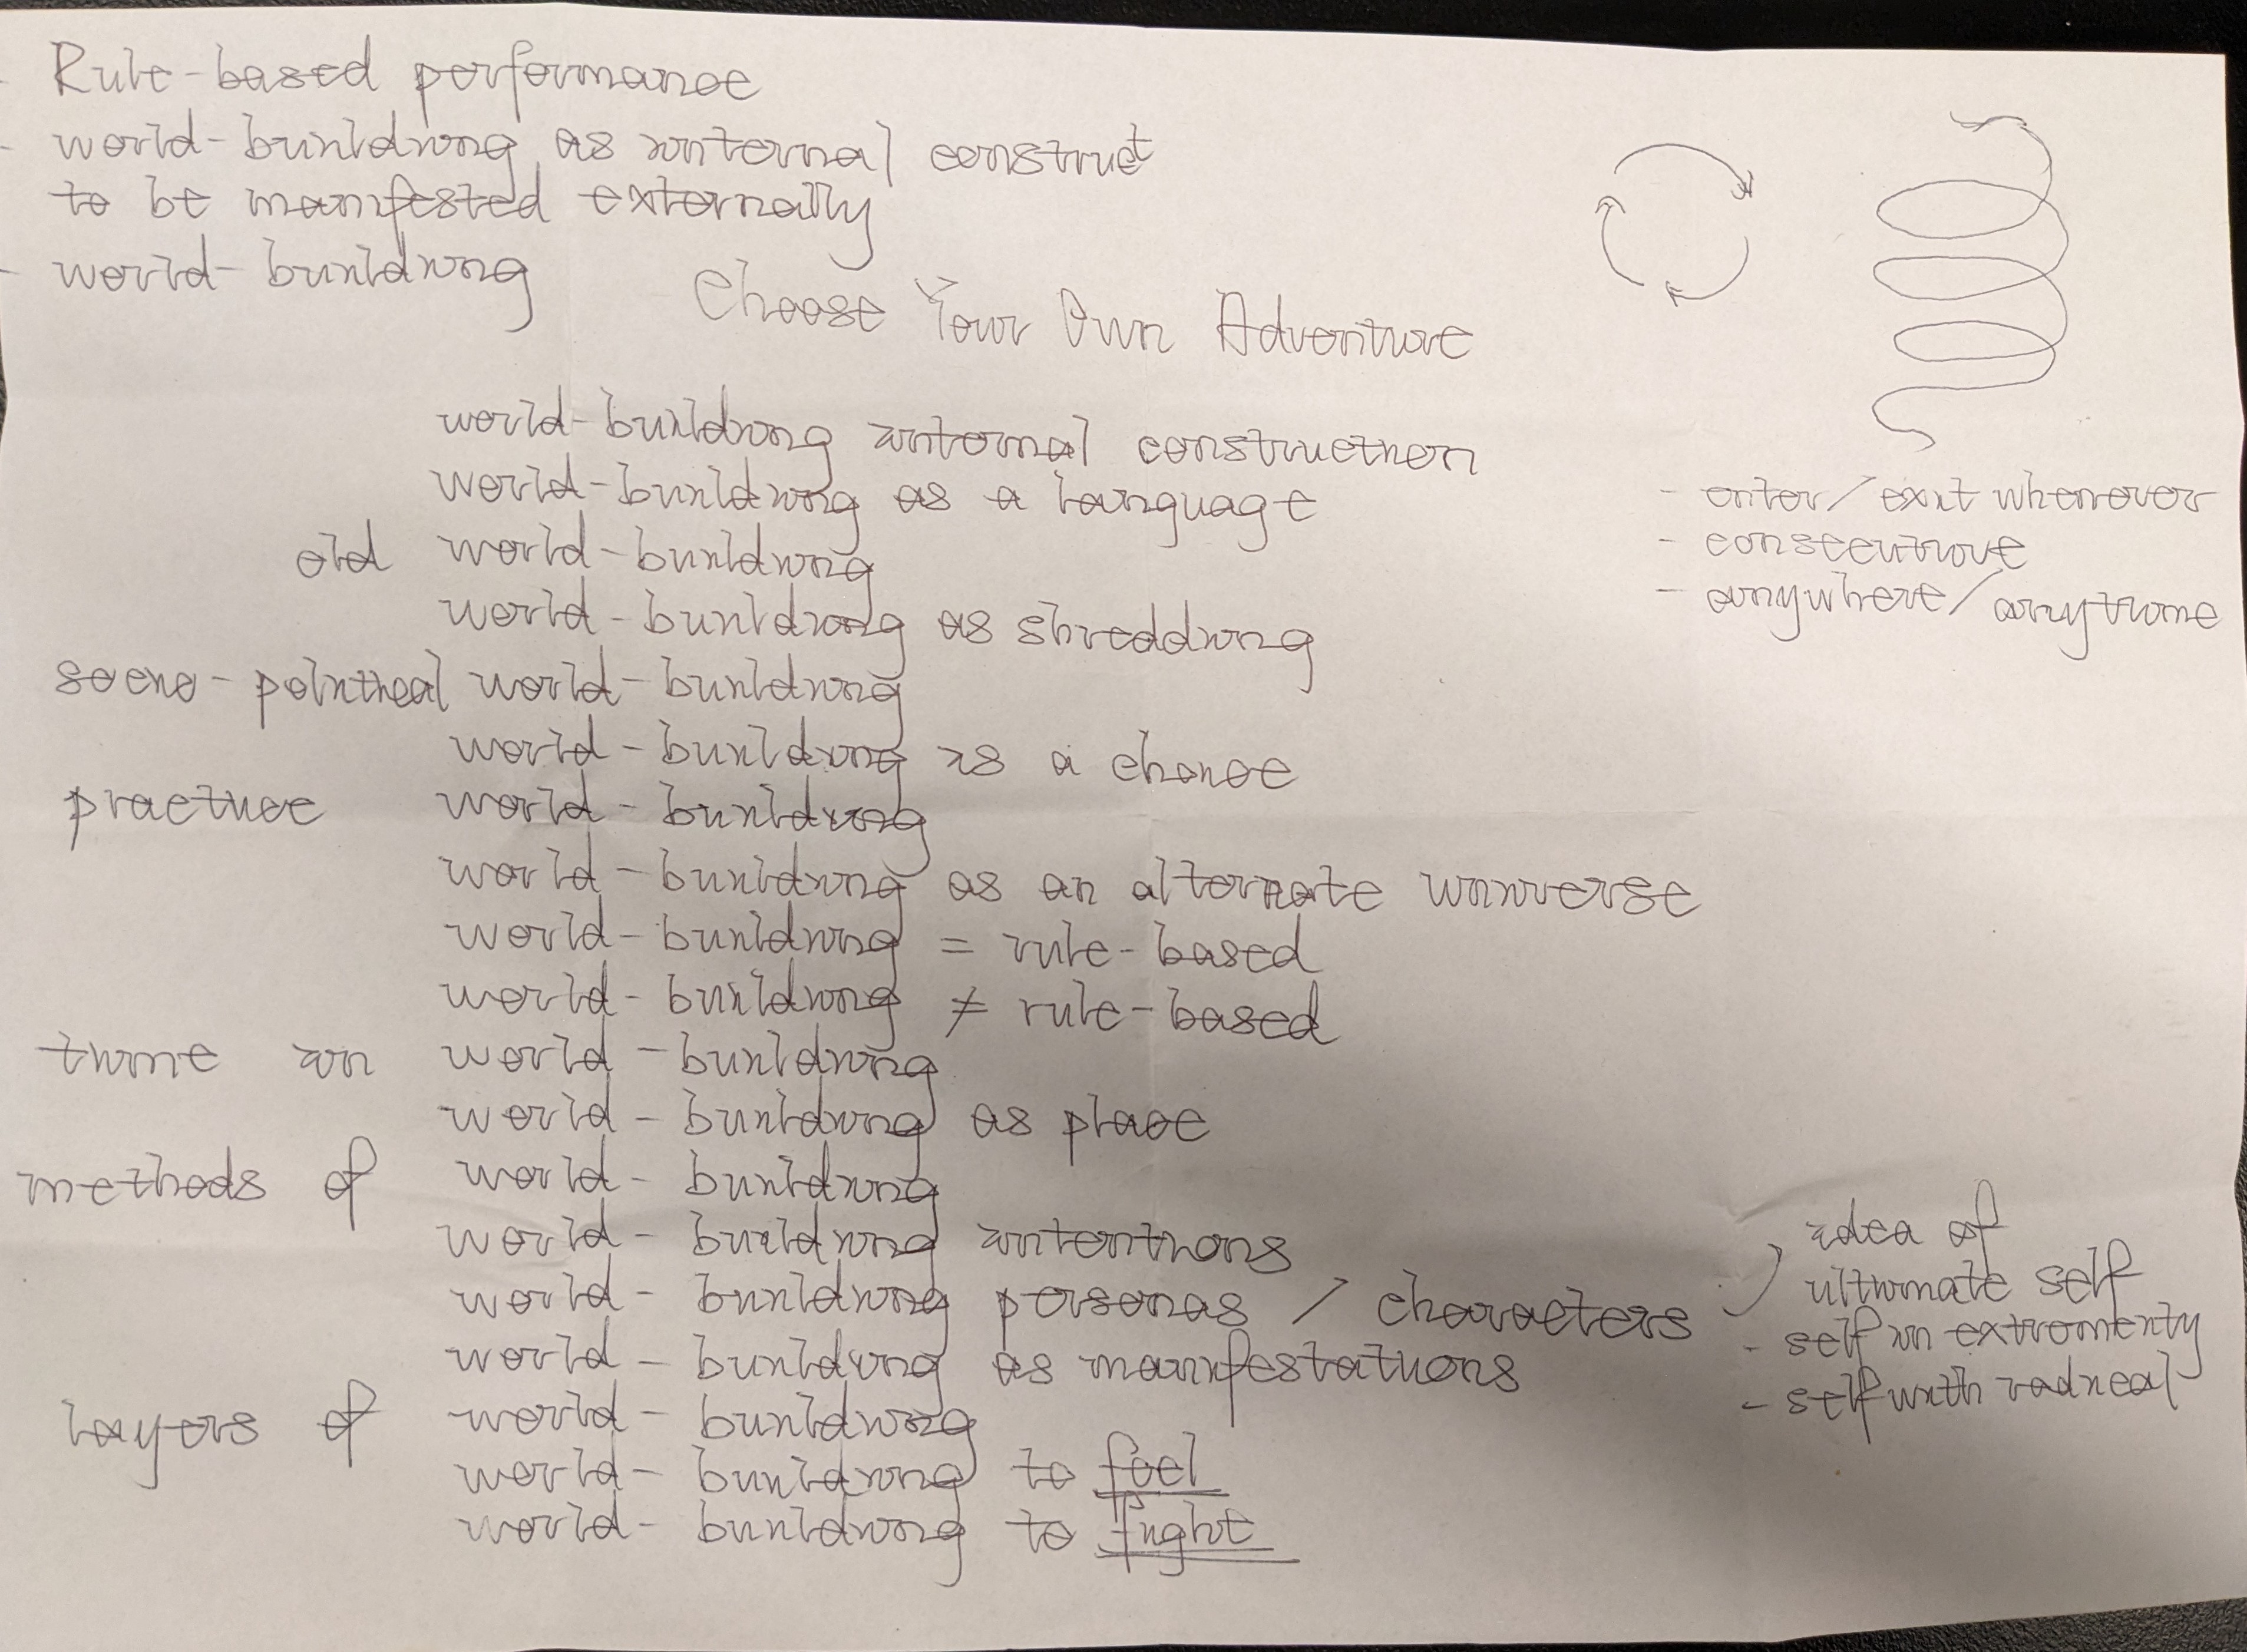 - Rule-based performance
- world-building as internal construct
to be manifested externally
- world-building
Choose Your Own Adventure
world-building internal construction
world-building as a language
old world-building
world-building as shredding
socio-political world-building
world-building is a choice
practice world-building
world-building as an alternate universe
world-building = rule-based
world-building ≠ rule-based
time in world-building
world-building as place
methods of world-building
world-building intentions
world-building personas / characters
world-building as manifestations
layers of world-building
world-building to feel
world-building to fight
- enter/exit whenever
- consecutive
- anywhere/anytime
idea of
ultimate self
- self in extremity
- self with radical